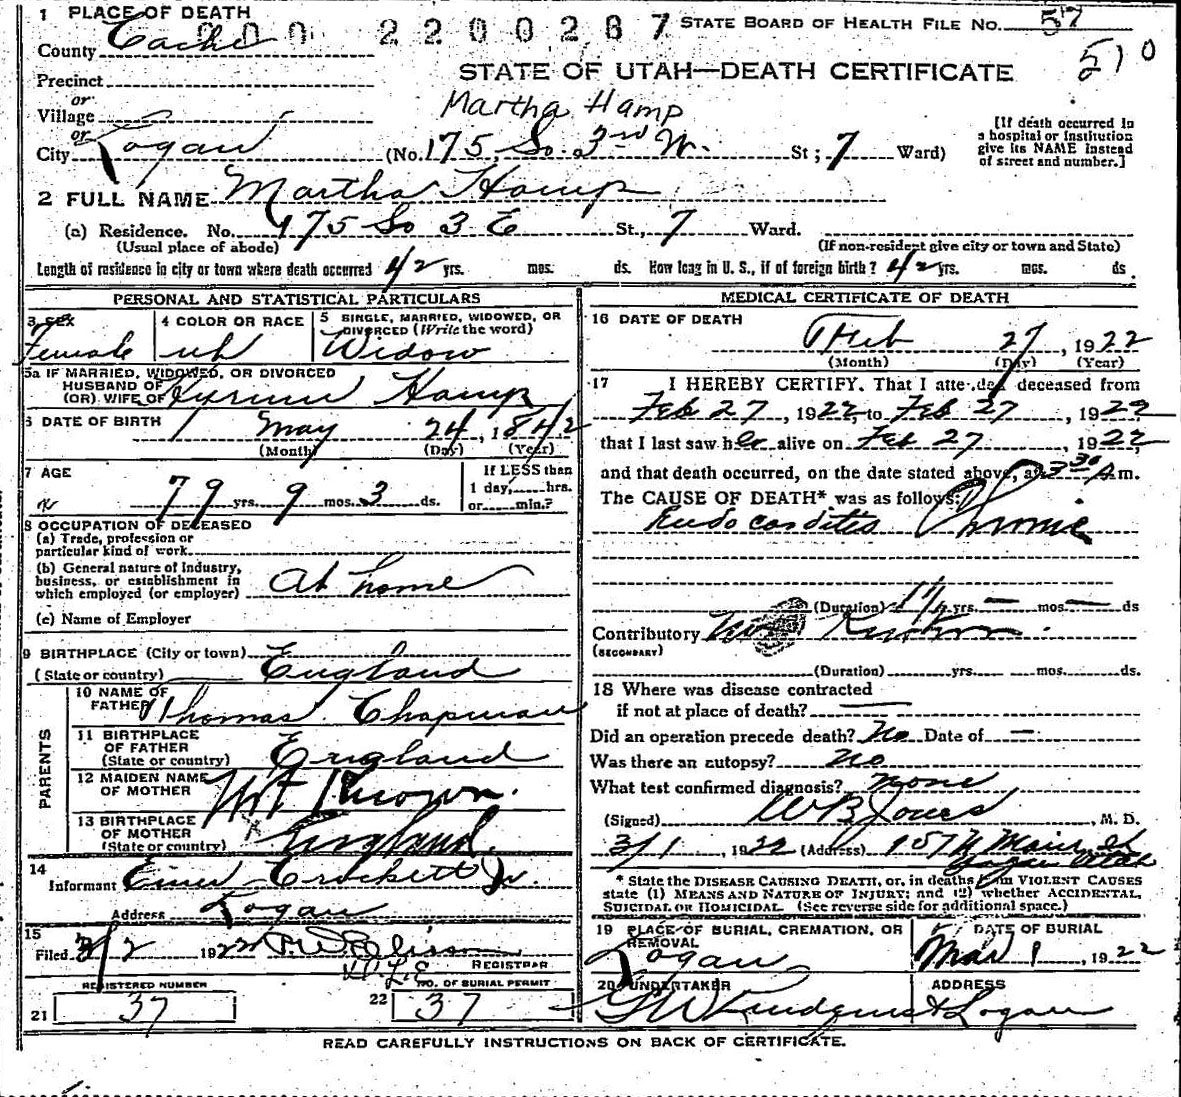 1 PLACE OF DEATH
000 2200267
STATE BOARD OF HEALTH FILE NO. 57
County Cache
510
Precinct
STATE OF UTAH—DEATH CERTIFICATE
or
Village
Martha Hamp
or
City Logan
(No. 175 So. 3rd W. St; 7 Ward)
[If death occurred in
a hospital or institution
give its NAME instead
of street and number.]
2 FULL NAME Martha Hamp
(a) Residence. No. 175 So 3 E St., 7 Ward.
(Usual place of abode)
(If non-resident give city or town and State)
Length of residence in city or town where death occurred 42 yrs. mos. ds. How long in U. S., if of foreign birth? 42 yrs. mos. ds.
PERSONAL AND STATISTICAL PARTICULARS
3 SEX
Female
4 COLOR OR RACE
wh
5 SINGLE, MARRIED, WIDOWED, OR
DIVORCED (Write the word)
Widow
5a IF MARRIED, WIDOWED, OR DIVORCED
HUSBAND OF
(OR) WIFE OF Hamp
6 DATE OF BIRTH May 24, 1842
(Month) (Day) (Year)
7 AGE
79 yrs. 9 mos. 3 ds.
If LESS than
1 day, hrs.
or min.?
8 OCCUPATION OF DECEASED
(a) Trade, profession or
particular kind of work
(b) General nature of Industry,
business, or establishment in
which employed (or employer) At home
(c) Name of Employer
9 BIRTHPLACE (City or town)
(State or country) England
PARENTS
10 NAME OF
FATHER Thomas Chapman
11 BIRTHPLACE
OF FATHER
(State or country) England
12 MAIDEN NAME
OF MOTHER Not Known.
13 BIRTHPLACE
OF MOTHER
(State or country) England.
14
Informant Crockett Jr.
Address Logan
15
Filed 3/2 1922
REGISTRAR
REGISTERED NUMBER
NO. OF BURIAL PERMIT
21 37
22 37
MEDICAL CERTIFICATE OF DEATH
16 DATE OF DEATH
Feb 27, 1922
(Month) (Day) (Year)
17 I HEREBY CERTIFY. That I attended deceased from
Feb 27, 1922 to Feb 27, 1922
that I last saw her alive on Feb 27, 1922
and that death occurred, on the date stated above, at 3 30 A m.
The CAUSE OF DEATH* was as follows:
Endocarditis Chronic
(Duration) yrs. — mos. — ds
Contributory Not Known.
(SECONDARY)
(Duration) yrs. mos. ds.
18 Where was disease contracted
if not at place of death? —
Did an operation precede death? No Date of —
Was there an autopsy? No
What test confirmed diagnosis? none
(Signed) W B Jones M. D.
3/1, 1922 (Address) 157 N Main St
Logan Utah
* State the DISEASE CAUSING DEATH, or, in deaths from VIOLENT CAUSES
state (1) MEANS AND NATURE OF INJURY; and (2) whether ACCIDENTAL,
SUICIDAL or HOMICIDAL. (See reverse side for additional space.)
19 PLACE OF BURIAL, CREMATION, OR
REMOVAL
Logan
DATE OF BURIAL
Mar 1, 1922
20 UNDERTAKER
ADDRESS
Logan
READ CAREFULLY INSTRUCTIONS ON BACK OF CERTIFICATE.